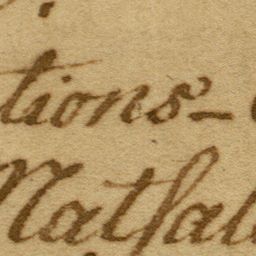 tions-
Nathal